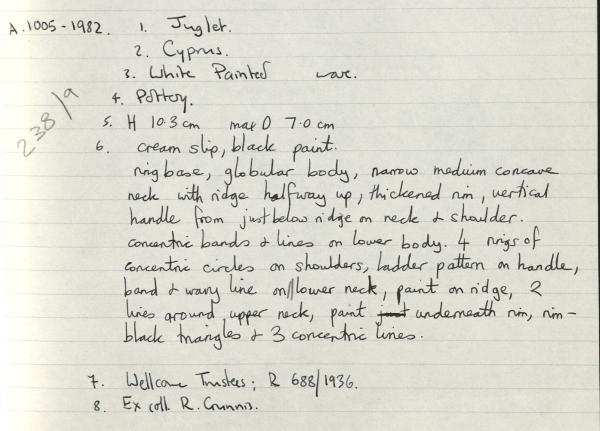 A.1005-1982. 1. Juglet.
2. Cyprus.
3. White Painted ware.
4. Pottery.
238/9
5. H 10.3 cm max D 7.0 cm
6. cream slip, black paint.
ring base, globular body, narrow medium concave
neck with ridge halfway up, thickened rim, vertical
handle from just below ridge on neck & shoulder.
concentric bands & lines on lower body. 4 rings of
concentric circles on shoulders, ladder pattern on handle,
band & wavy line on lower neck, paint on ridge, 2
lines around upper neck, paint just underneath rim, rim -
black triangles & 3 concentric lines.
7. Wellcome Trustees; R 688/1936.
8. Ex coll R. Gunnis.